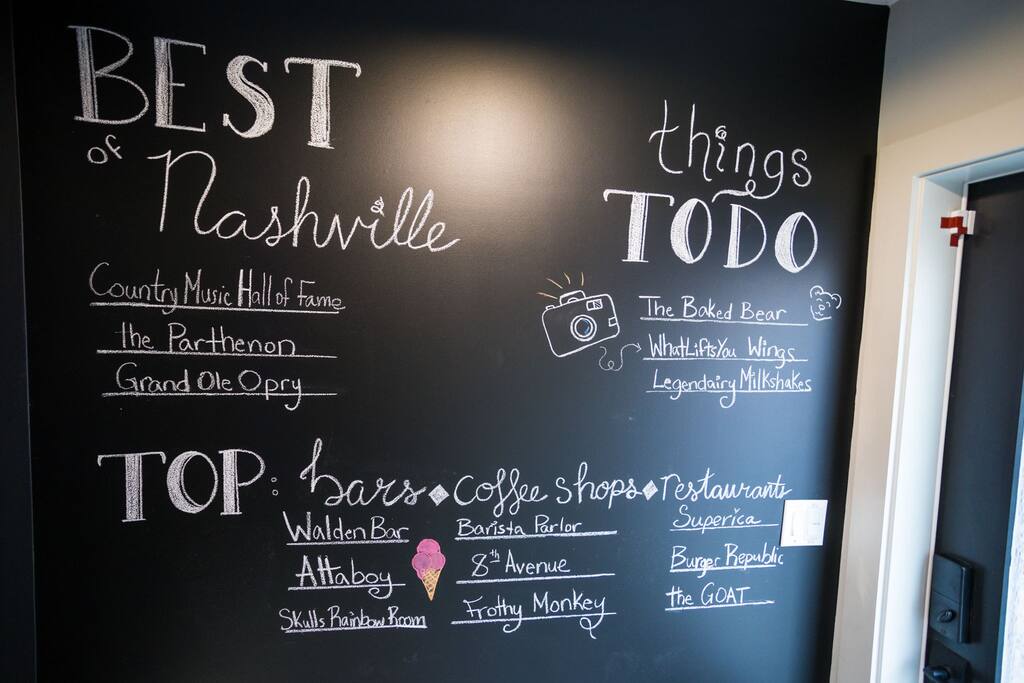 BEST
of
Nashville
Country Music Hall of Fame
the Parthenon
Grand Ole Opry
things
TO DO
The Baked Bear
WhatLiftsYou Wings
Legendairy Milkshakes
TOP: bars ◆ coffee shops ◆ restaurants
Walden Bar
Attaboy
Skulls Rainbow Room
Barista Parlor
8th Avenue
Frothy Monkey
Superica
Burger Republic
the GOAT